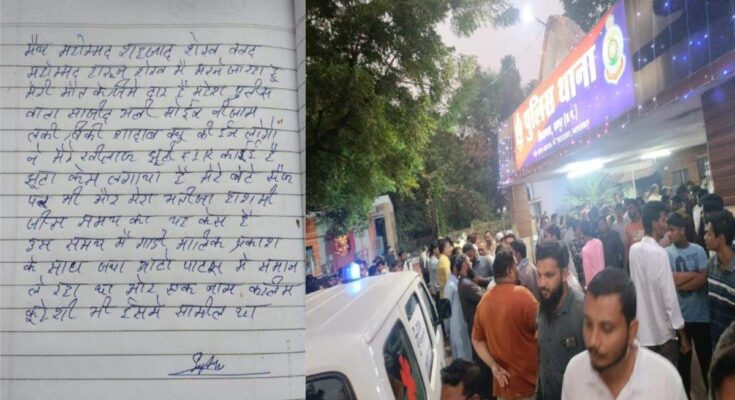 मैय महोम्मद शहजाद शेख वल्द
महोम्मद हारून शेख मै मरने जा रहा हु
मेरी मौत के जिमेदार है महेश पुलीस
वाला साजीद अली
लकी विक्की शादाब के ईन लोगो
ने मेरे खीलाफ झुटी FIR कराई है
झुटा केस लगाया है मेरे बेटे सैफ
पर भी और मेरा भतीजा हाशमी
जीस समय का यह केस है
उस समय मै गाडी मालिक प्रकाश
के साथ जया ओटो पार्टस मे समान
ले रहा था और एक नाम कालिम
कूरेशी भी ईसमे सामील था
पुलिस थाना